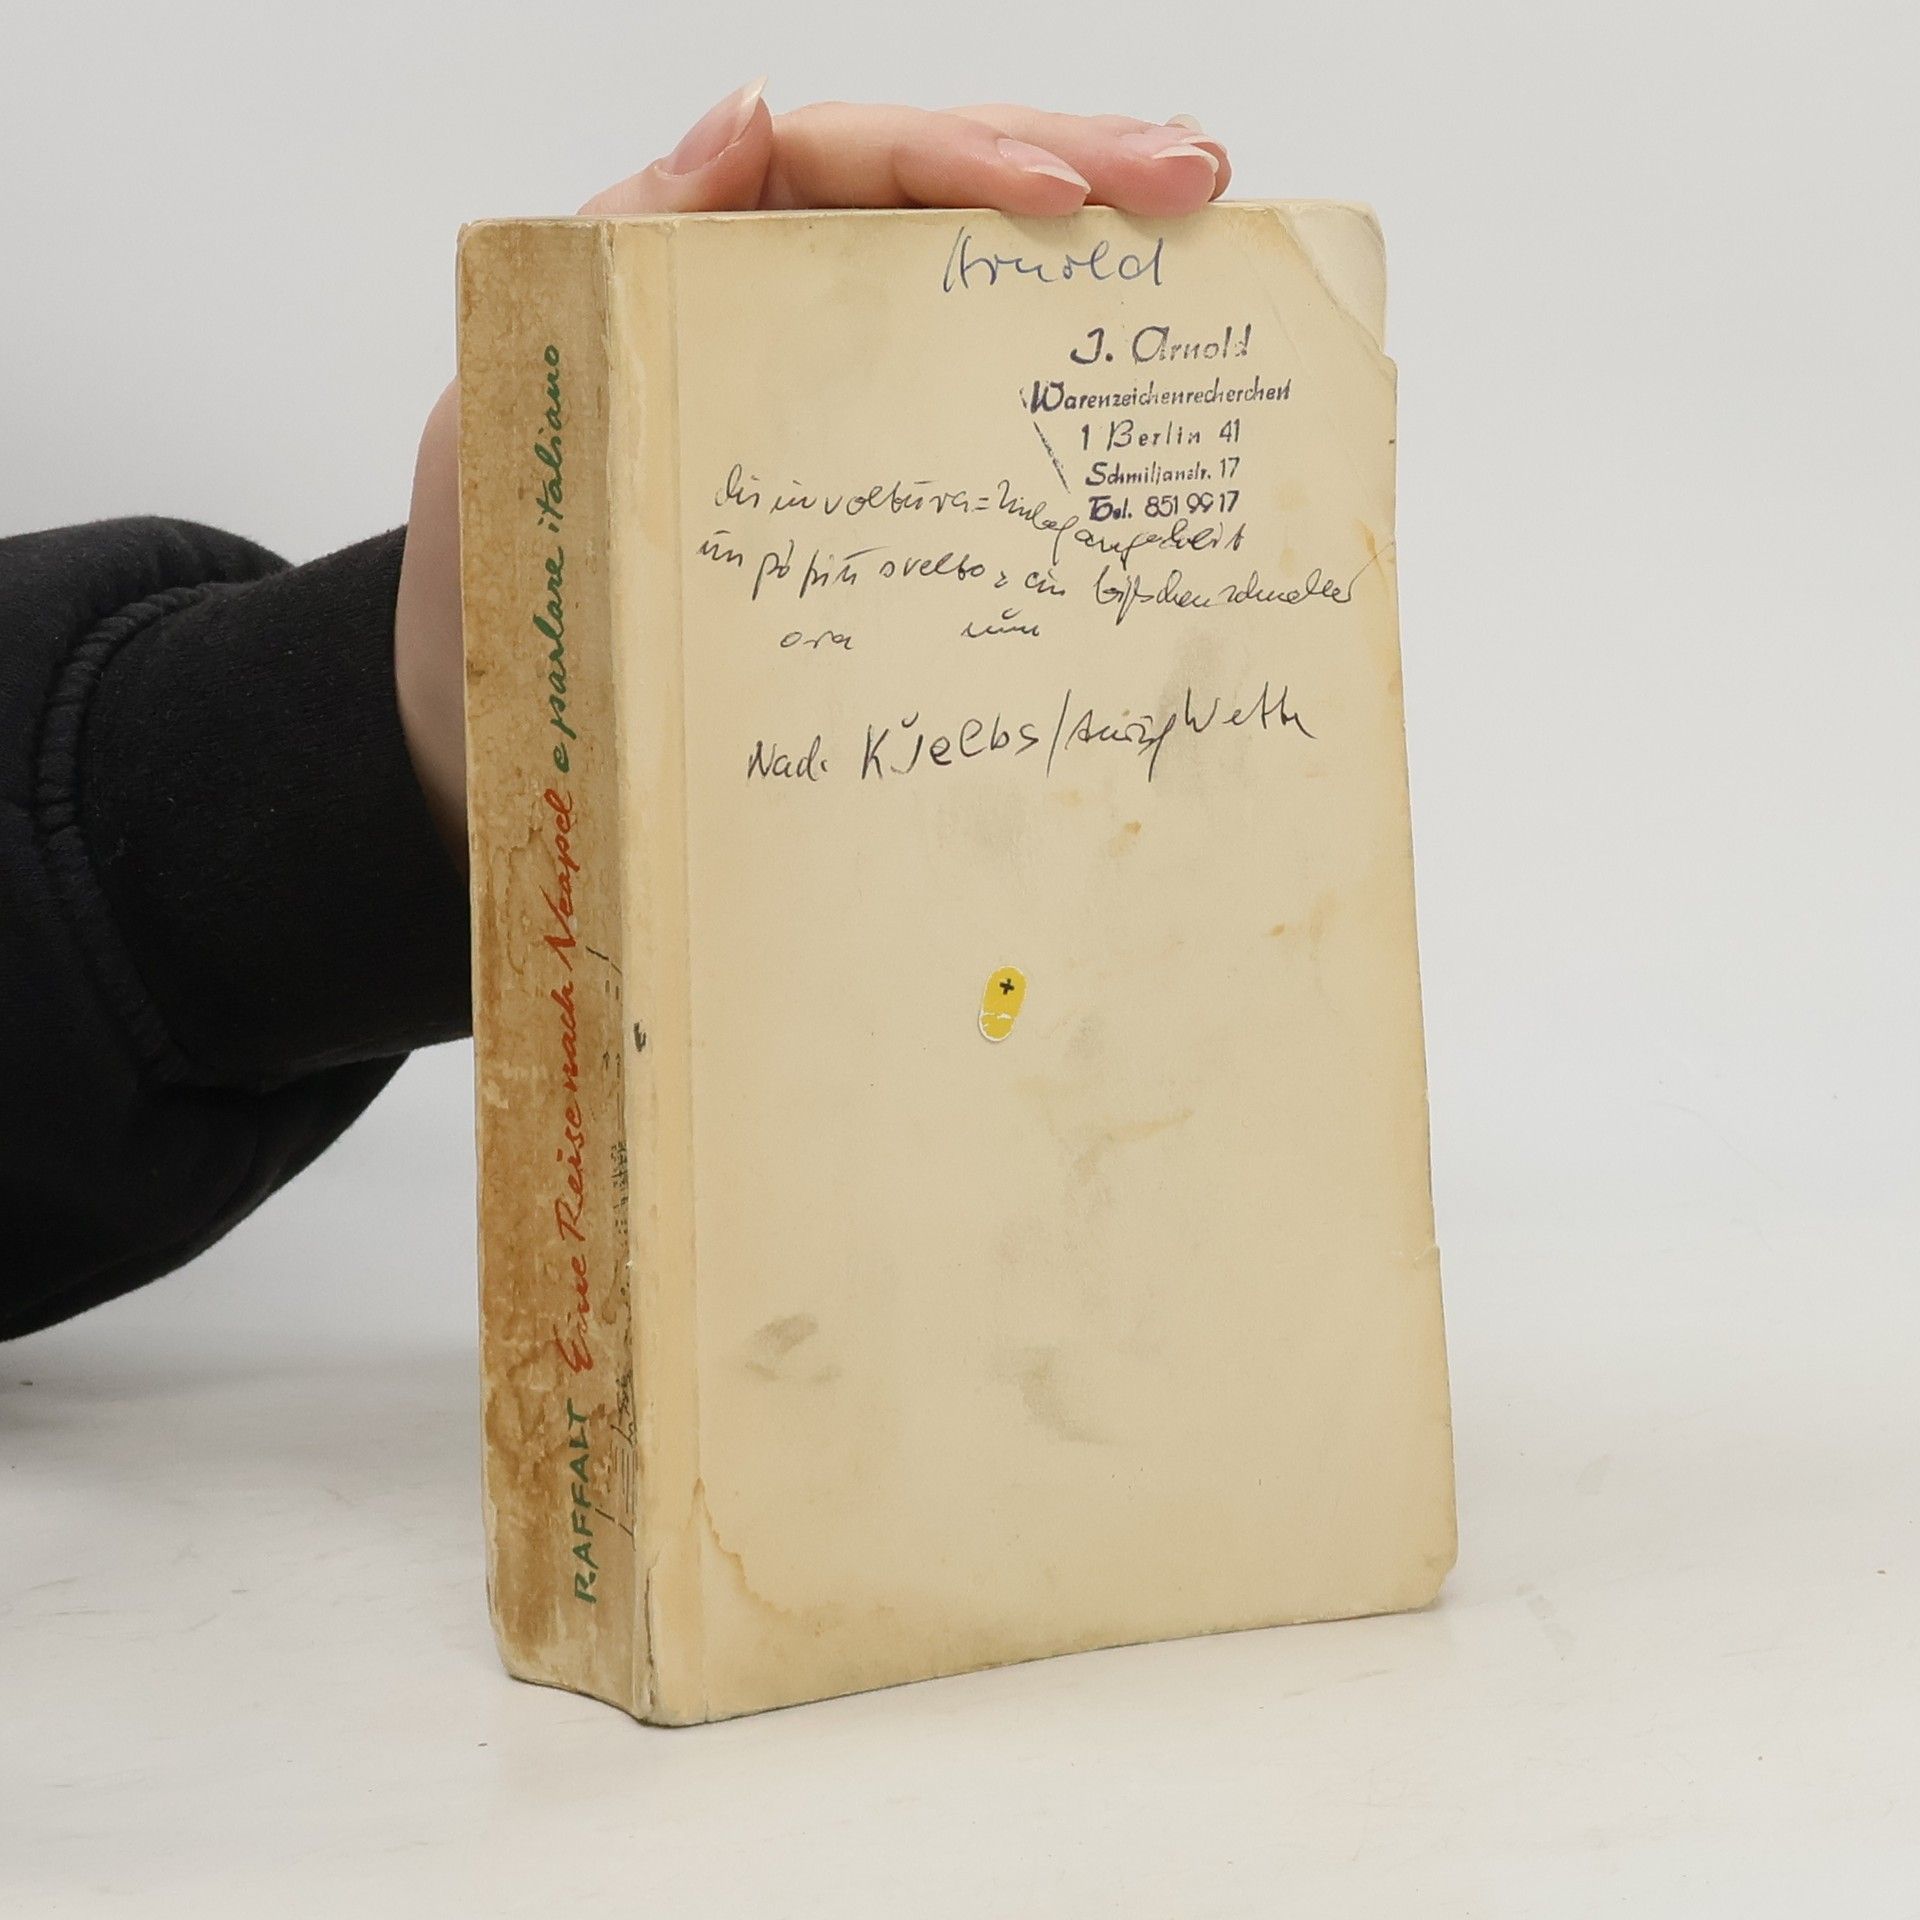 RAFFALT Eine Reise nach Neapel e parlare italiano
Arnold
J. Arnold
Warenzeichenrecherchen
1 Berlin 41
Schmiljanstr. 17
Tel. 851 99 17
disinvoltura =
un pò più svelto = ein bißchen schneller
ora nun
Nad.
+